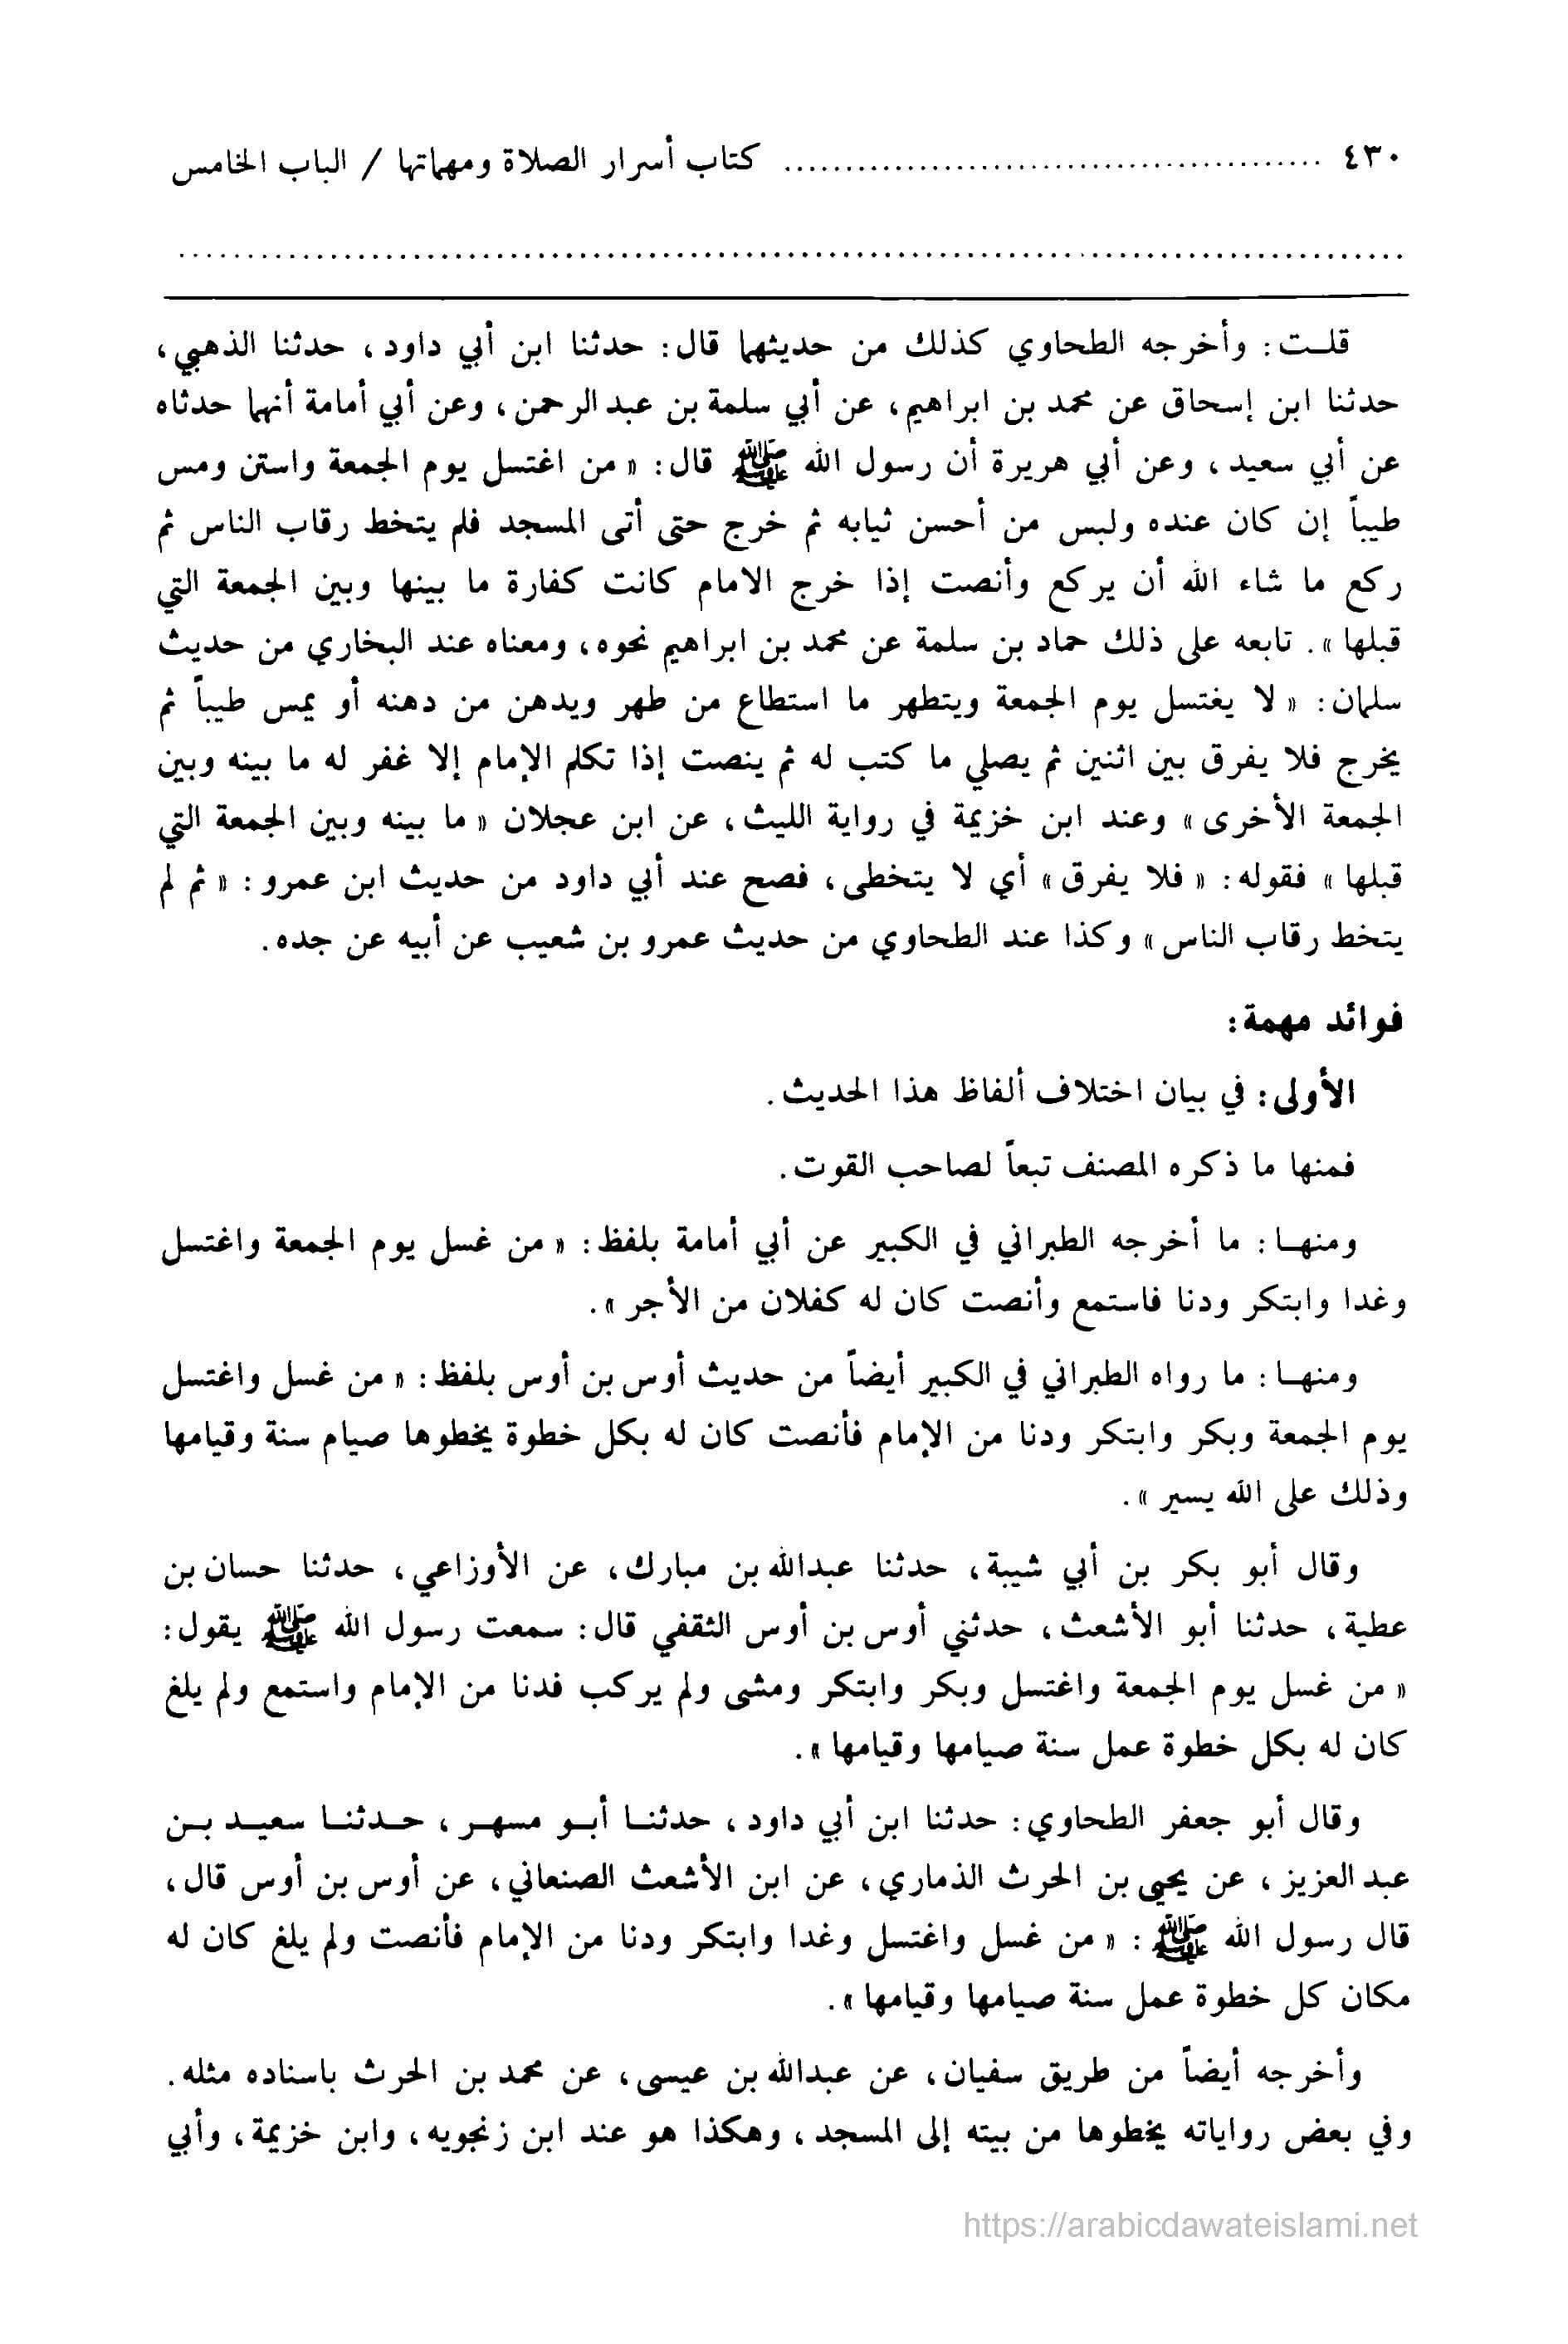 ٤٣٠ ........................................ كتاب أسرار الصلاة ومهماتها / الباب الخامس
قلـت: وأخرجه الطحاوي كذلك من حديثهما قال: حدثنا ابن أبي داود، حدثنا الذهبي،
حدثنا ابن إسحاق عن محمد بن ابراهيم، عن أبي سلمة بن عبد الرحمن، وعن أبي أمامة أنهما حدثاه
عن أبي سعيد، وعن أبي هريرة أن رسول الله ﷺ قال: « من اغتسل يوم الجمعة واستن ومس
طيباً إن كان عنده ولبس من أحسن ثيابه ثم خرج حتى أتى المسجد فلم يتخط رقاب الناس ثم
ركع ما شاء الله أن يركع وأنصت إذا خرج الامام كانت كفارة ما بينها وبين الجمعة التي
قبلها ». تابعه على ذلك حماد بن سلمة عن محمد بن ابراهيم نحوه، ومعناه عند البخاري من حديث
سلمان: « لا يغتسل يوم الجمعة ويتطهر ما استطاع من طهر ويدهن من دهنه أو يمس طيباً ثم
يخرج فلا يفرق بين اثنين ثم يصلي ما كتب له ثم ينصت إذا تكلم الإمام إلا غفر له ما بينه وبين
الجمعة الأخرى » وعند ابن خزيمة في رواية الليث، عن ابن عجلان « ما بينه وبين الجمعة التي
قبلها » فقوله: « فلا يفرق » أي لا يتخطى، فصح عند أبي داود من حديث ابن عمرو: « ثم لم
يتخط رقاب الناس » وكذا عند الطحاوي من حديث عمرو بن شعيب عن أبيه عن جده.
فوائد مهمة:
الأولى: في بيان اختلاف ألفاظ هذا الحديث.
فمنها ما ذكره المصنف تبعاً لصاحب القوت.
ومنهـا: ما أخرجه الطبراني في الكبير عن أبي أمامة بلفظ: « من غسل يوم الجمعة واغتسل
وغدا وابتكر ودنا فاستمع وأنصت كان له كفلان من الأجر ».
ومنهـا: ما رواه الطبراني في الكبير أيضاً من حديث أوس بن أوس بلفظ: « من غسل واغتسل
يوم الجمعة وبكر وابتكر ودنا من الإمام فأنصت كان له بكل خطوة يخطوها صيام سنة وقيامها
وذلك على الله يسير ».
وقال أبو بكر بن أبي شيبة، حدثنا عبدالله بن مبارك، عن الأوزاعي، حدثنا حسان بن
عطية، حدثنا أبو الأشعث، حدثني أوس بن أوس الثقفي قال: سمعت رسول الله ﷺ يقول:
« من غسل يوم الجمعة واغتسل وبكر وابتكر ومشى ولم يركب فدنا من الإمام واستمع ولم يلغ
كان له بكل خطوة عمل سنة صيامها وقيامها ».
وقال أبو جعفر الطحاوي: حدثنا ابن أبي داود، حدثنـا أبـو مسهـر، حـدثنـا سعيـد بـن
عبد العزيز، عن يحيى بن الحرث الذماري، عن ابن الأشعث الصنعاني، عن أوس بن أوس قال،
قال رسول الله ﷺ: « من غسل واغتسل وغدا وابتكر ودنا من الإمام فأنصت ولم يلغ كان له
مكان كل خطوة عمل سنة صيامها وقيامها ».
وأخرجه أيضاً من طريق سفيان، عن عبدالله بن عيسى، عن محمد بن الحرث باسناده مثله.
وفي بعض رواياته يخطوها من بيته إلى المسجد، وهكذا هو عند ابن زنجويه، وابن خزيمة، وأبي
https://arabicdawateislami.net